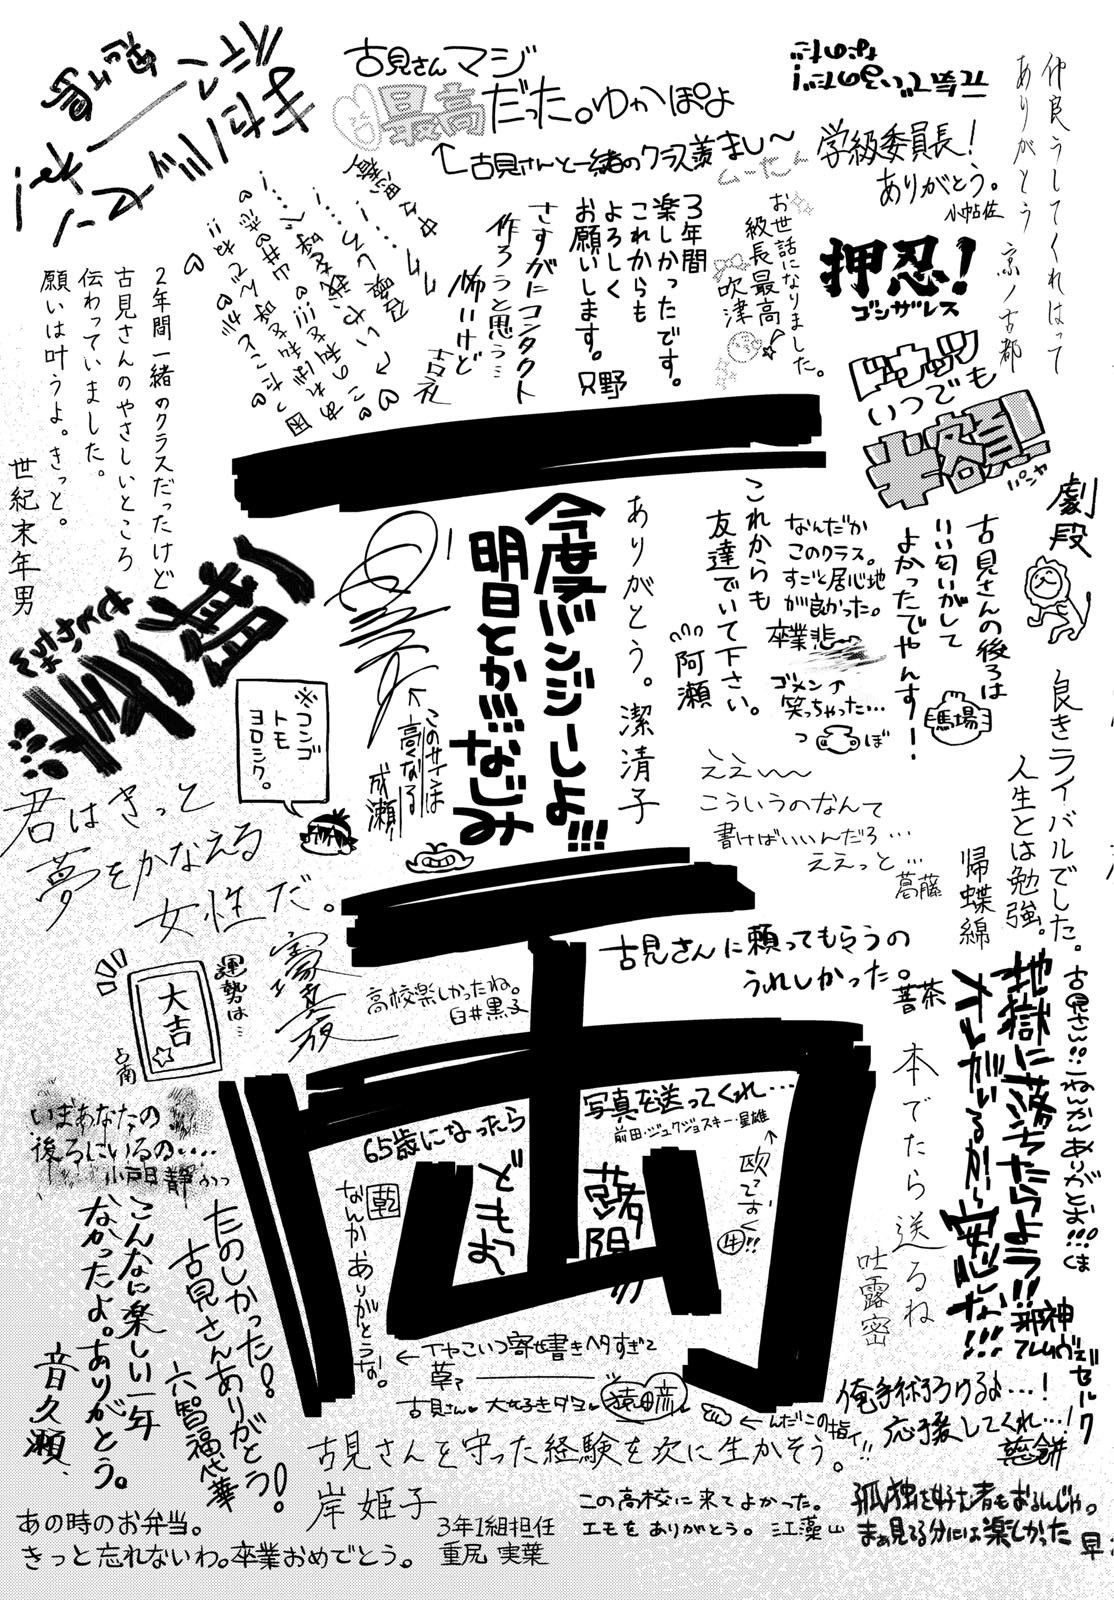 仲良うしてくれはって
ありがとう 京ノ古都
古見さんマジ
最高だった。ゆかぽよ
←古見さんと一緒のクラス羨まし〜
学級委員長!
ありがとう。
小帖佐
お世話になりました。
級長最高
吹津
押忍!
ゴンザレス
3年間
楽しかったです。
これからも
よろしく
お願いします。只野
さすがにコンタクト
作ろうと思う…
怖いけど
古礼
2年間一緒のクラスだったけど
古見さんのやさしいところ
伝わっていました。
願いは叶うよ。きっと。
世紀末年男
ドーナッツ
いつでも
半額!!
劇段
古見さんの後ろは
いい匂いがして
よかったでやんすー!
馬場
なんだか
このクラス。
すごく居心地
が良かった。
卒業悲
ゴメン
笑っちゃった…
つぼ
これからも
友達でいて下さい。
阿瀬
ありがとう。潔清子
今度バンジーしよ!!!
明日とか!!!なじみ
←このサインは
高くなる
成瀬
※コンゴ
トモ
ヨロシク。
一期一会
君はきっと
夢をかなえる
女性だ。
ええ〜
こういうのなんて
書けばいいんだろ…
ええっと…
葛藤
良きライバルでした。
人生とは勉強。
帰蝶綿
古見さんに頼ってもらうの
うれしかった。
高校楽しかったね。
白井黒子
運勢は…
大吉
占南
古見さん!!二ねんかんありがとお!!!くま
地獄に落ちたらよう!!
オレがいるから安心しな!!!
邪神
本でたら送るね
吐露密
いまあなたの
後ろにいるの‥‥
小戸日静
写真を送ってくれ…
前田・ジュクジョスキー・星雄
65歳になったら
どもっ
乾
なんか、ありがとうな。
たのしかった!
古見さんありがとう!
六智福代華
こんなに楽しい一年
なかったよ。ありがとう。
音久瀬、
←イヤこいつ寄せ書きヘタすぎて
草ァ
古見さん 大好きダヨ 猿田彦
←んだこの指ィ!!
俺手術うけるよ…!
応援してくれ…!
古見さんを守った経験を次に生かそう。
岸姫子
あの時のお弁当。
きっと忘れないわ。卒業おめでとう。
3年1組担任
重尻 実葉
この高校に来てよかった。
エモをありがとう。 江藻山
孤独を好む者もおるんじゃ。
まぁ見てる分には楽しかった